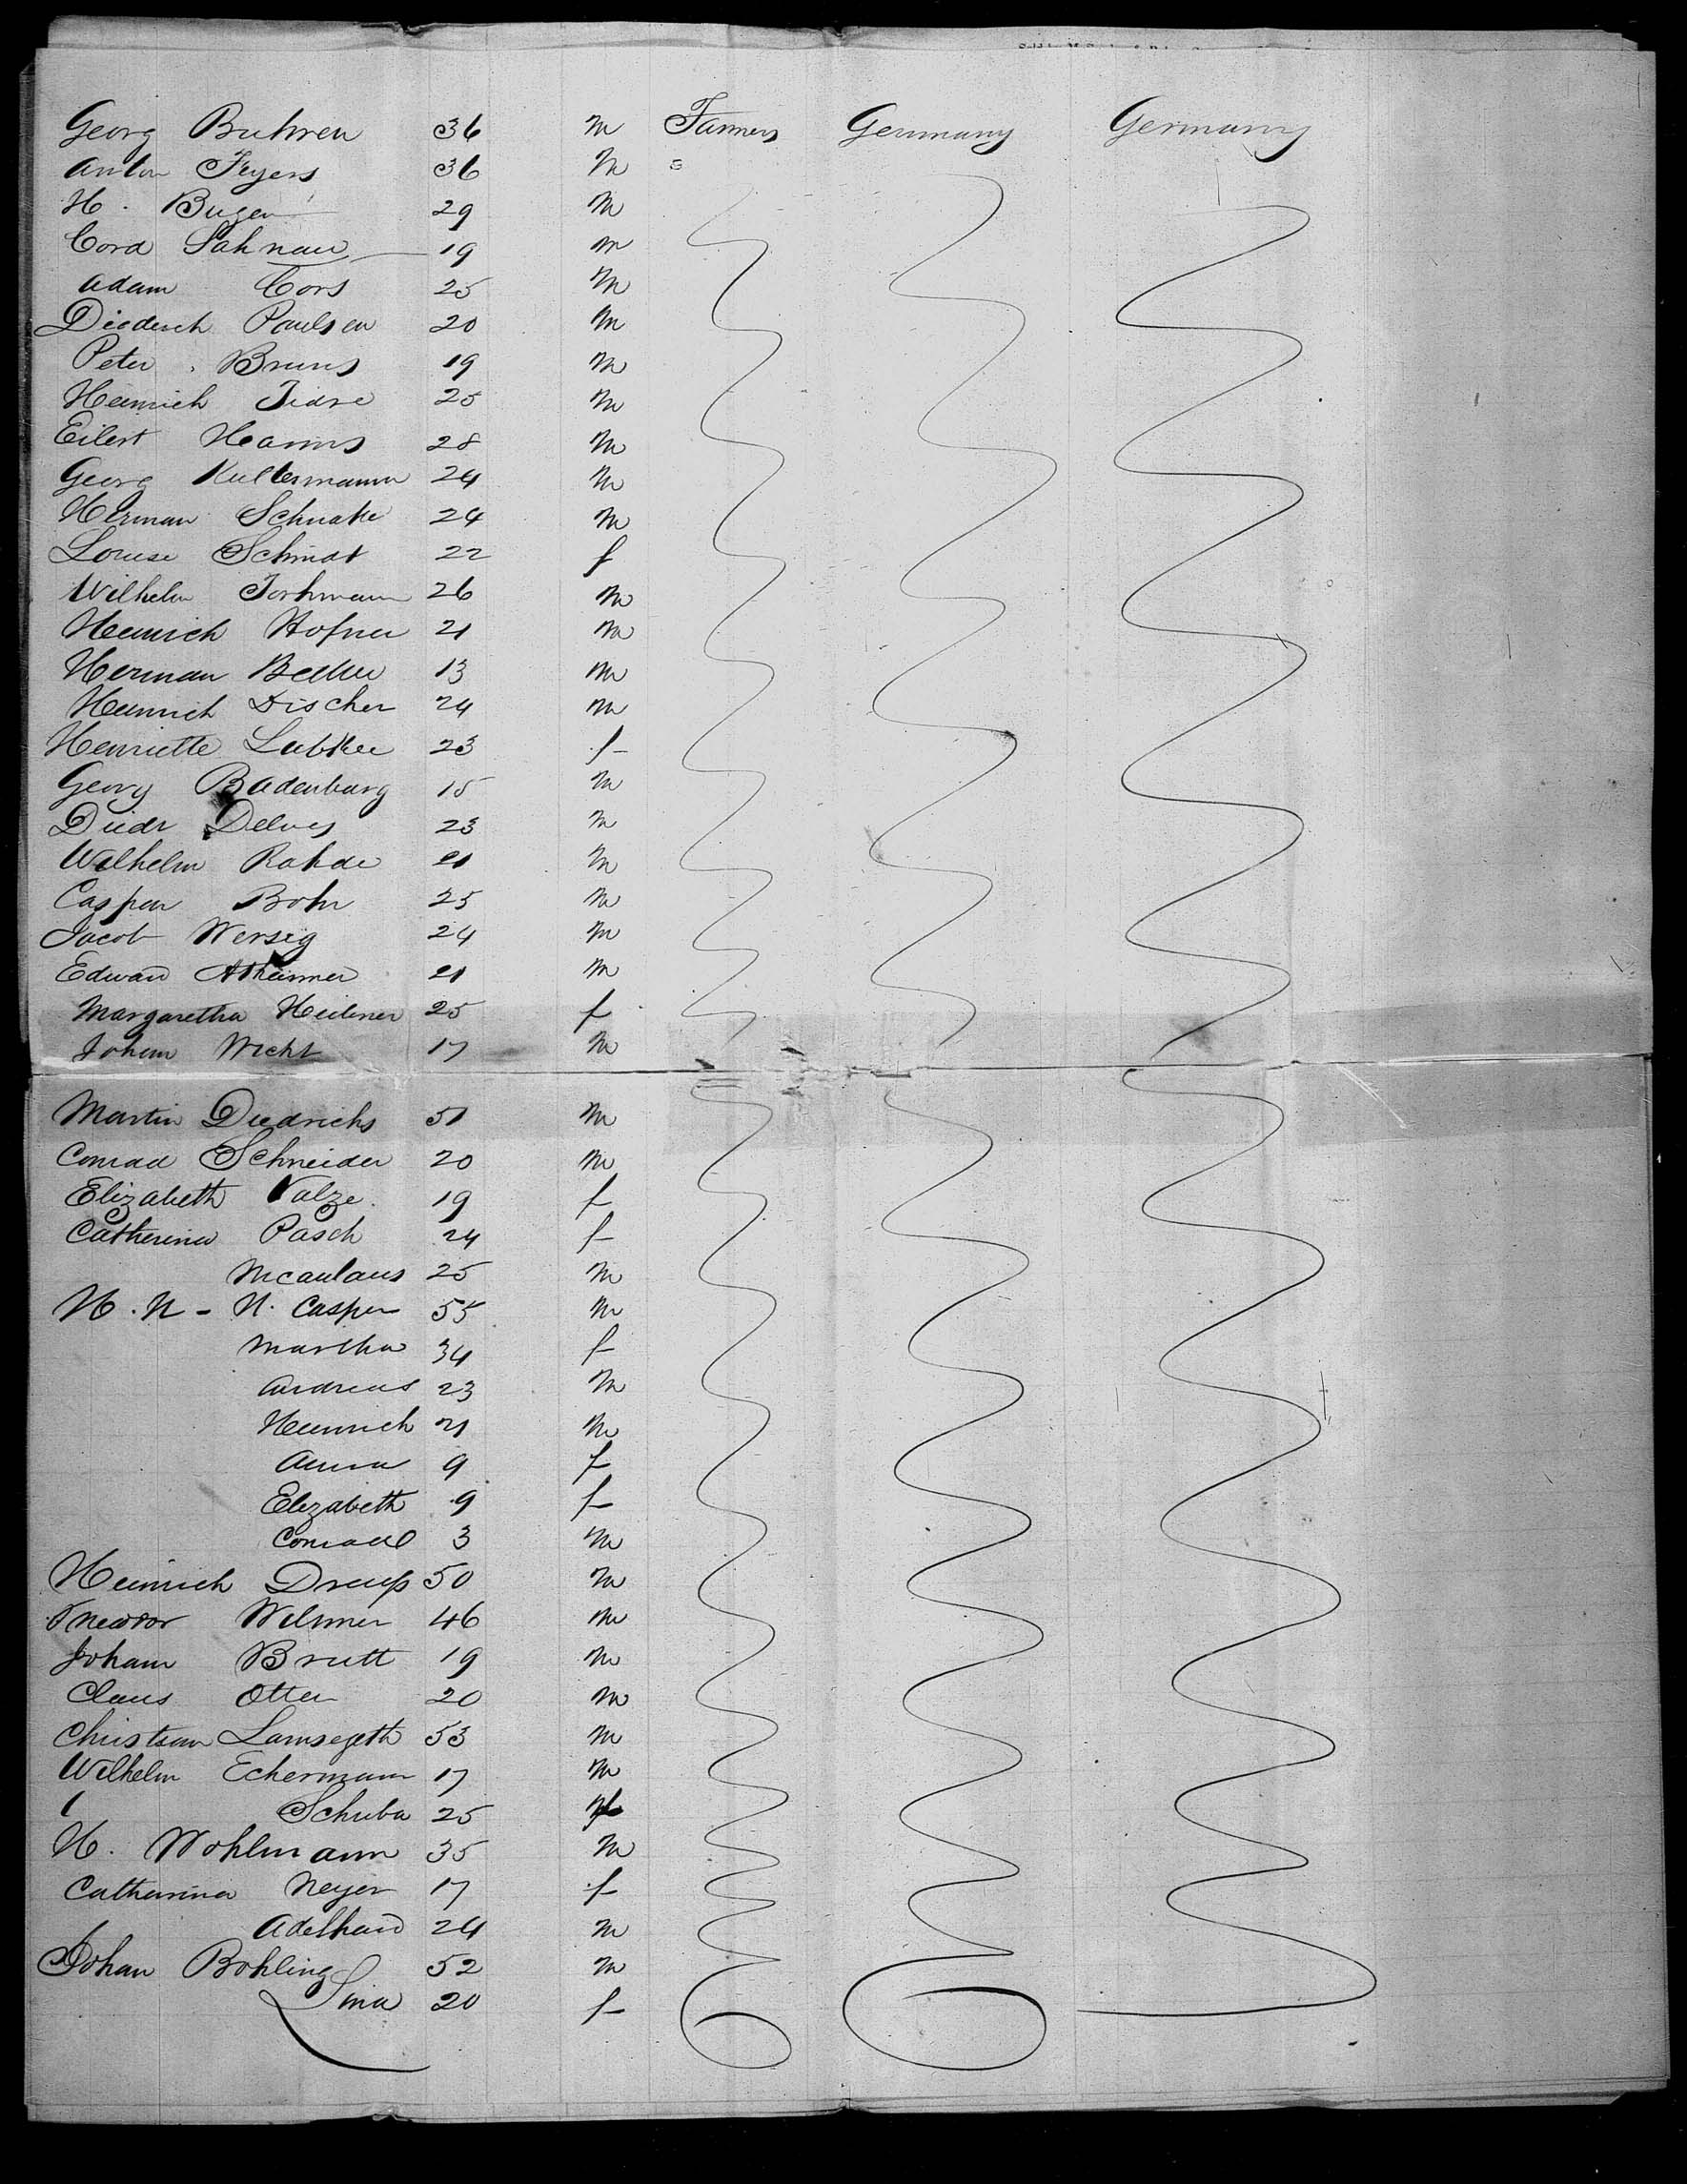 Georg Buhren 36 m Farmers Germany Germany
Anton Feyers 36 m =
H. Bugen 29 m
Cord Sahnau 19 m
Adam Cors 25 m
Diederich Paulsen 20 m
Peter Bruns 19 m
Heinrich 25 m
Eilert Harms 28 m
Georg Kullermann 24 m
Herman Schnake 24 m
Louise Schmdt 22 f
Wilhelm 26 m
Heinrich Hofner 21 m
Herman 13 m
Heinrich Discher 24 m
Henriette Lubker 23 f
Georg Badenburg 15 m
Diedr 23 m
Wilhelm Rohde 21 m
Casper Bohr 25 m
Jacob Wersig 24 m
Edward 21 m
Margaretha Heibner 25 f
Johann Wicht 17 m
Martin Diedrichs 51 m
Conrad Schneider 20 m
Elizabeth Valze 19 f
Catherina Pasch 24 f
25 m
H. N - N. Casper 55 m
Martha 34 f
Andreas 23 m
Heinrich 21 m
Anna 9 f
Elizabeth 9 f
Conrad 3 m
Heinrich 50 m
Theodor Wilmer 46 m
Johann Brutt 19 m
Claus Otten 20 m
Christian 53 m
Wilhelm Eckermann 17 m
Schuba 25
H. Wohlmann 35 m
Catharina Neyer 17 f
Adelhaid 24 m
Johan Bohling 52 m
Lina 20 f